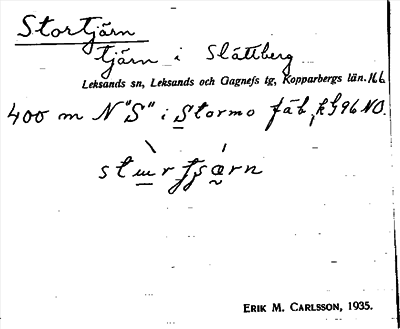 Stortjärn
tjärn i Slättberg
Leksands sn, Leksands och Gagnefs tg, Kopparbergs län.
400 m N "S" i Stormo fäb, kbl 96 NO.
stɯrtjsærn
ERIK M. CARLSSON, 1935.